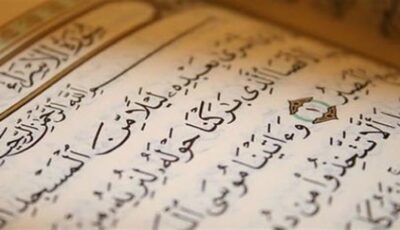 سُورَةُ الإِسْرَاءِ
ٱللَّهِ ٱلرَّحْمَٰنِ ٱلرَّحِيمِ
سْرَىٰ بِعَبْدِهِۦ لَيْلًا مِّنَ ٱلْمَسْجِدِ
قْصَا ٱلَّذِى بَٰرَكْنَا حَوْلَهُۥ لِنُرِيَهُۥ مِنْ
بَصِيرُ ١ وَءَاتَيْنَا مُوسَى ٱلْكِ
أَلَّا تَتَّخِذُوا۟ مِن دُو